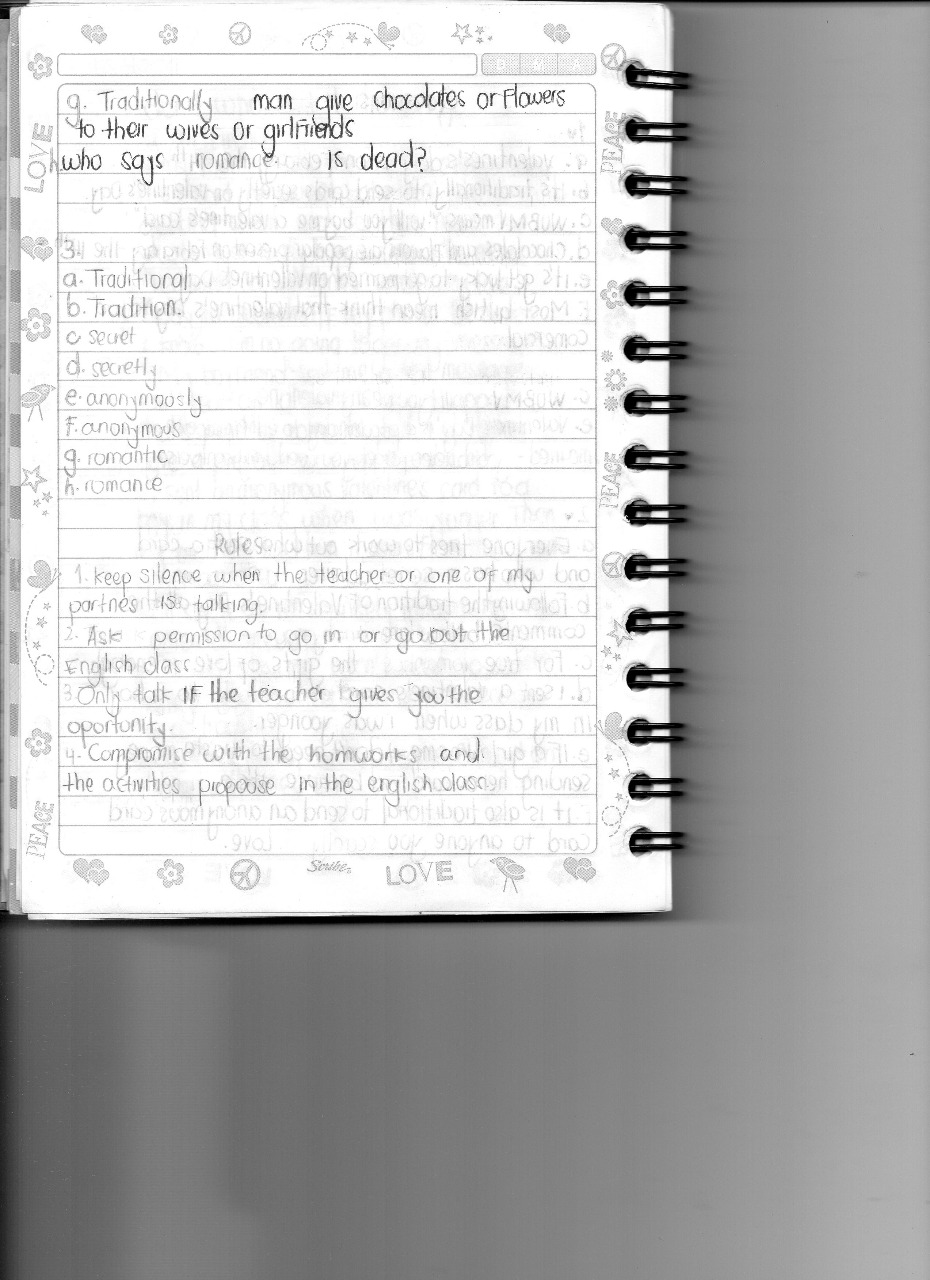 D M A
g. Traditionally man give chocolates or Flowers
to their wives or girlfriends
h. who says romance is dead?
3.
a. Traditional
b. Tradition.
c secret
d. secretly
e. anonymoosly
f. anonymous
g. romantic
h. romance
Rules.
1. keep silence when the teacher or one of my
partnes is talking.
2. Ask permission to go in or go out the
English class
3 Only talk IF the teacher gives you the
oportunity.
4. Compromise with the homworks and
the activities propouse in the english class.
LOVE
PEACE
PEACE
PEACE
Scribe
LOVE